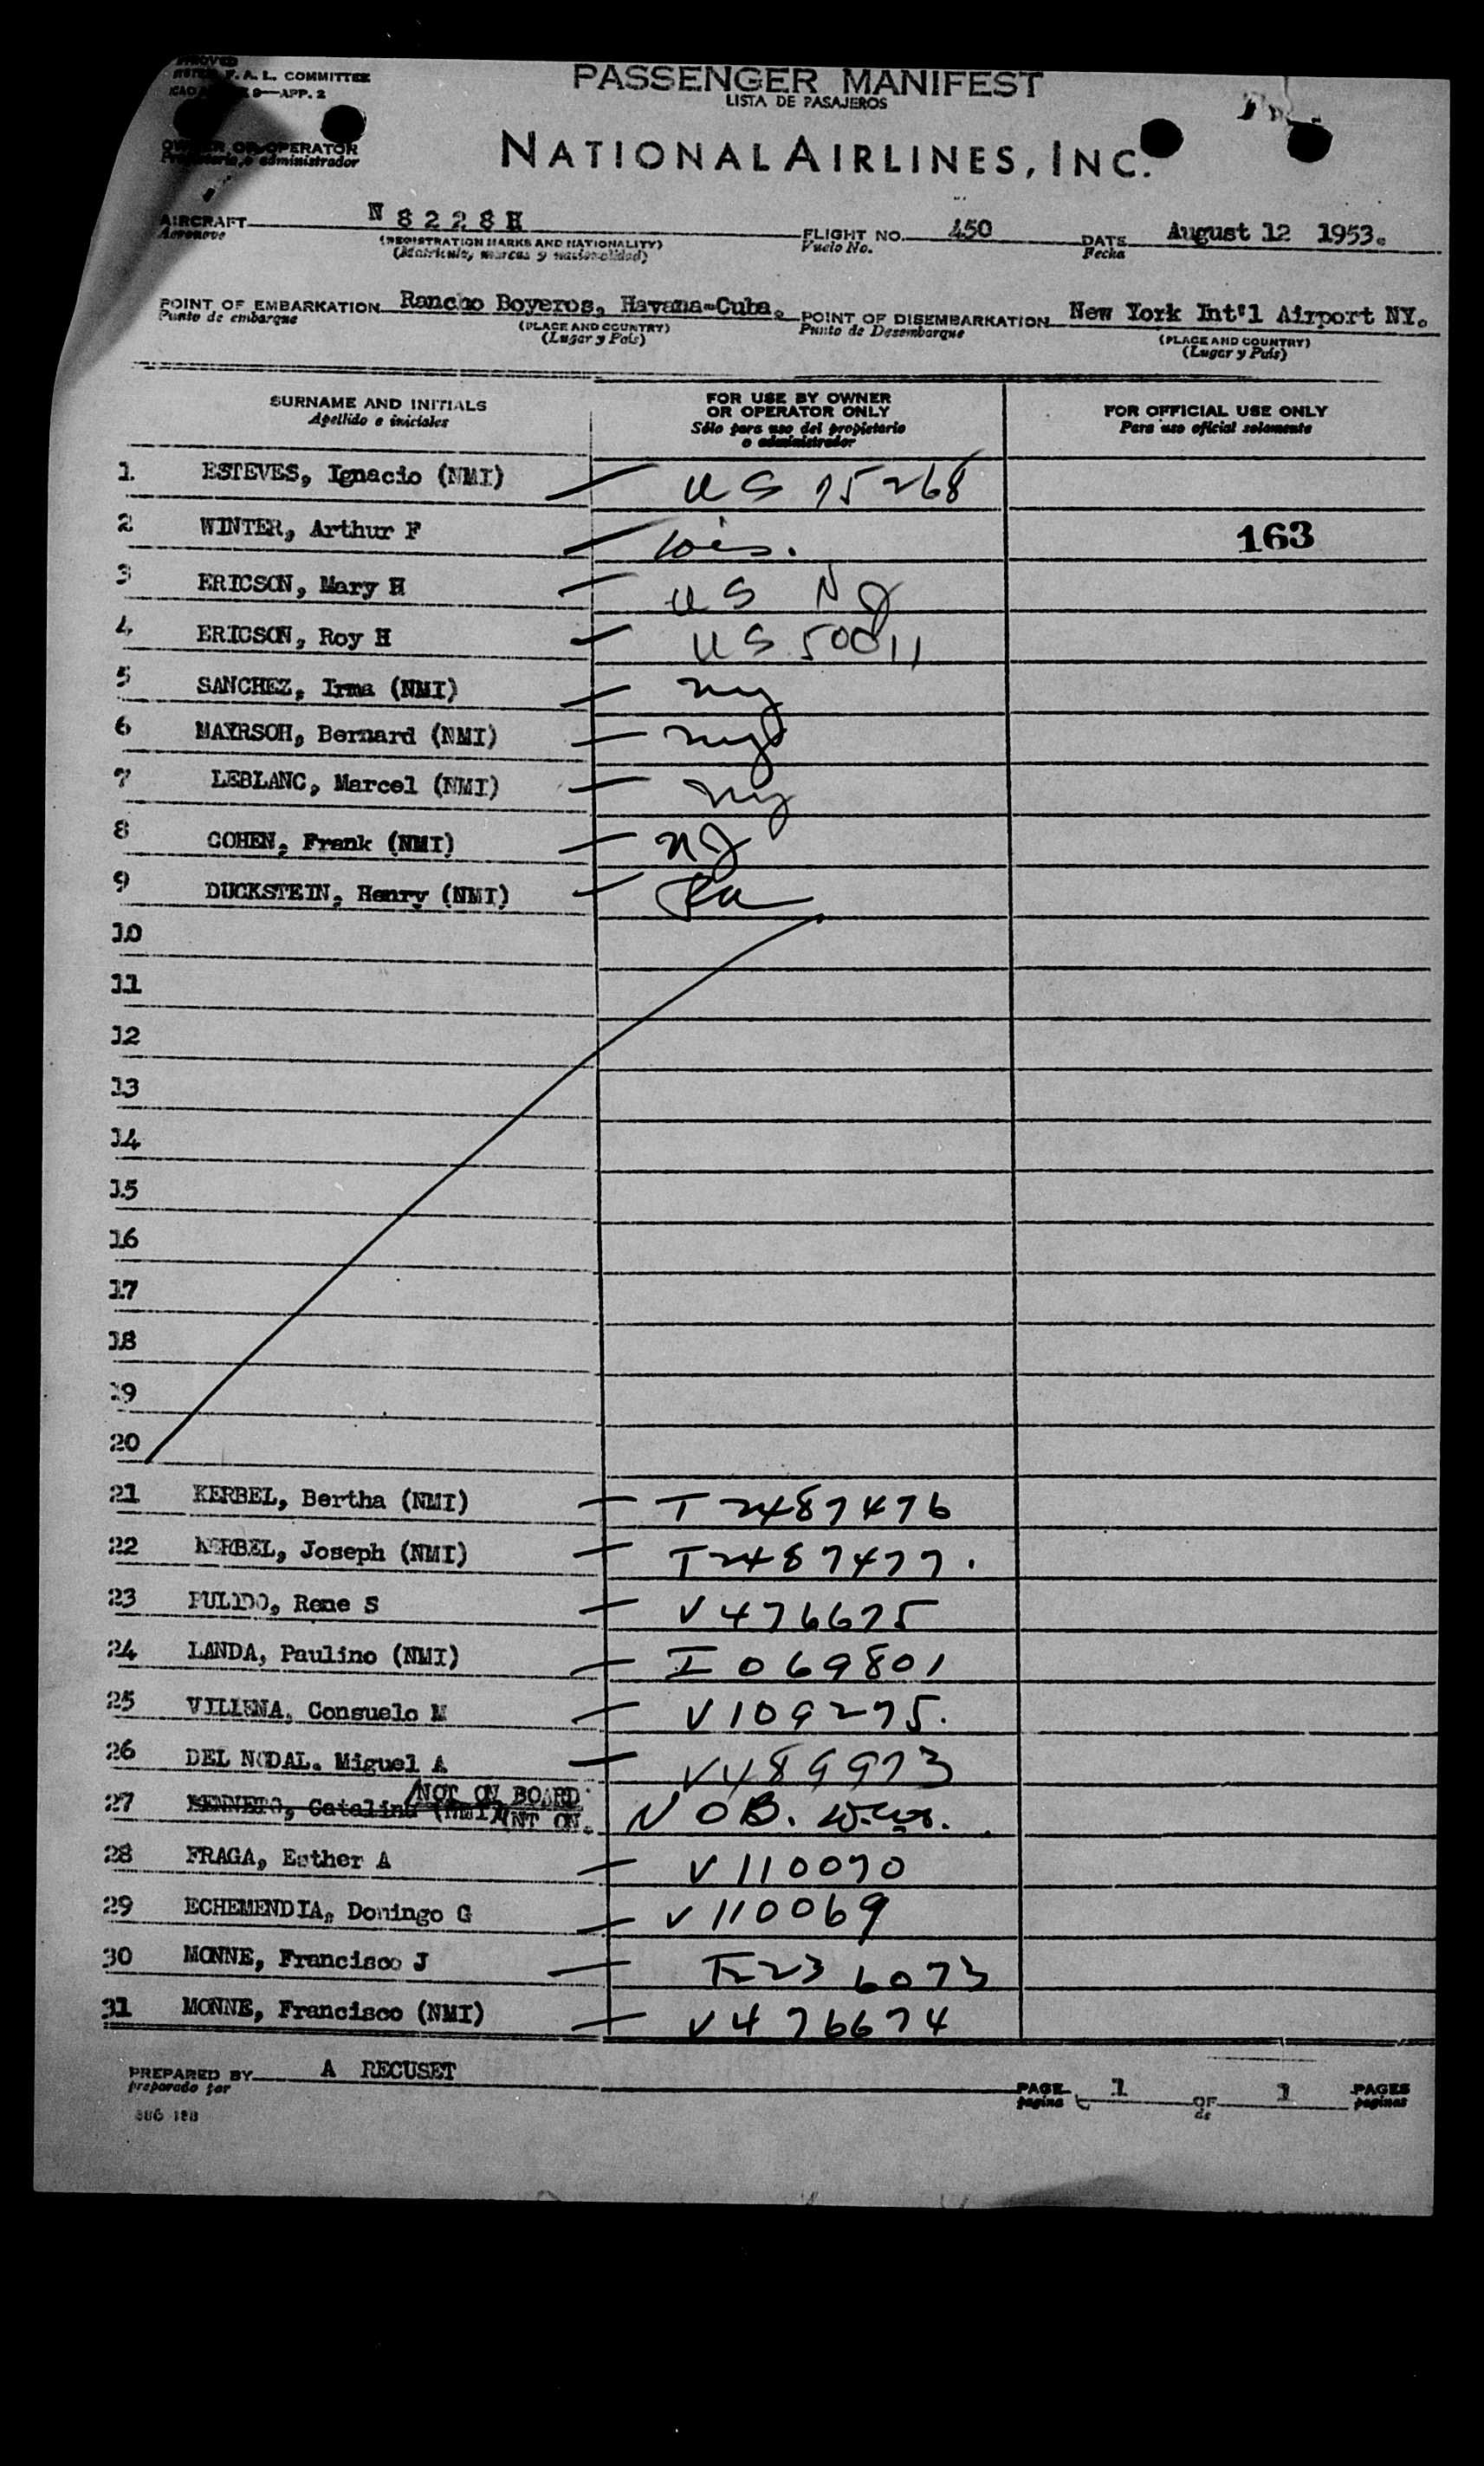 F. A. L. COMMITTEE
9—APP. 2
PASSENGER MANIFEST
LISTA DE PASAJEROS
OWNER OR OPERATOR
Propietario o administrador
NATIONAL AIRLINES, INC.
AIRCRAFT N 8 2 2 8 H FLIGHT NO. 450 DATE August 12 1953.
Aeronave (REGISTRATION MARKS AND NATIONALITY) Vuelo No. Fecha
(Matricula, marcas y nacionalidad)
POINT OF EMBARKATION Rancho Boyeros, Havana-Cuba. POINT OF DISEMBARKATION New York Int'l Airport NY.
Punto de embarque (PLACE AND COUNTRY) Punto de Desembarque (PLACE AND COUNTRY)
(Lugar y País) (Lugar y País)
SURNAME AND INITIALS FOR USE BY OWNER OR OPERATOR ONLY FOR OFFICIAL USE ONLY
Apellido e iniciales Sólo para uso del propietario o administrador Para uso oficial solamente
1. ESTEVES, Ignacio (NMI) US 75268
2 WINTER, Arthur F Wis. 163
3 ERICSON, Mary H US NJ
4 ERICSON, Roy H US 50011
5 SANCHEZ, Irma (NMI) ny
6 MAYRSOH, Bernard (NMI) ny
7 LEBLANC, Marcel (NMI) ny
8 COHEN, Frank (NMI) NJ
9 DUCKSTEIN, Henry (NMI) Pa
10
11
12
13
14
15
16
17
18
19
20
21 KERBEL, Bertha (NMI) T2487476
22 KERBEL, Joseph (NMI) T2487477.
23 PULIDO, Rene S V476675
24 LANDA, Paulino (NMI) I069801
25 VILLENA, Consuelo M V109275.
26 DEL NODAL. Miguel A V489973
27 Catalina (NMI) NOT ON BOARD NOB.
28 FRAGA, Esther A V110070
29 ECHEMENDIA, Domingo G V110069
30 MONNE, Francisco J T2236073
31 MONNE, Francisco (NMI) V476674
PREPARED BY A RECUSET PAGE 1 OF 1 PAGES
preparado por pagina de paginas